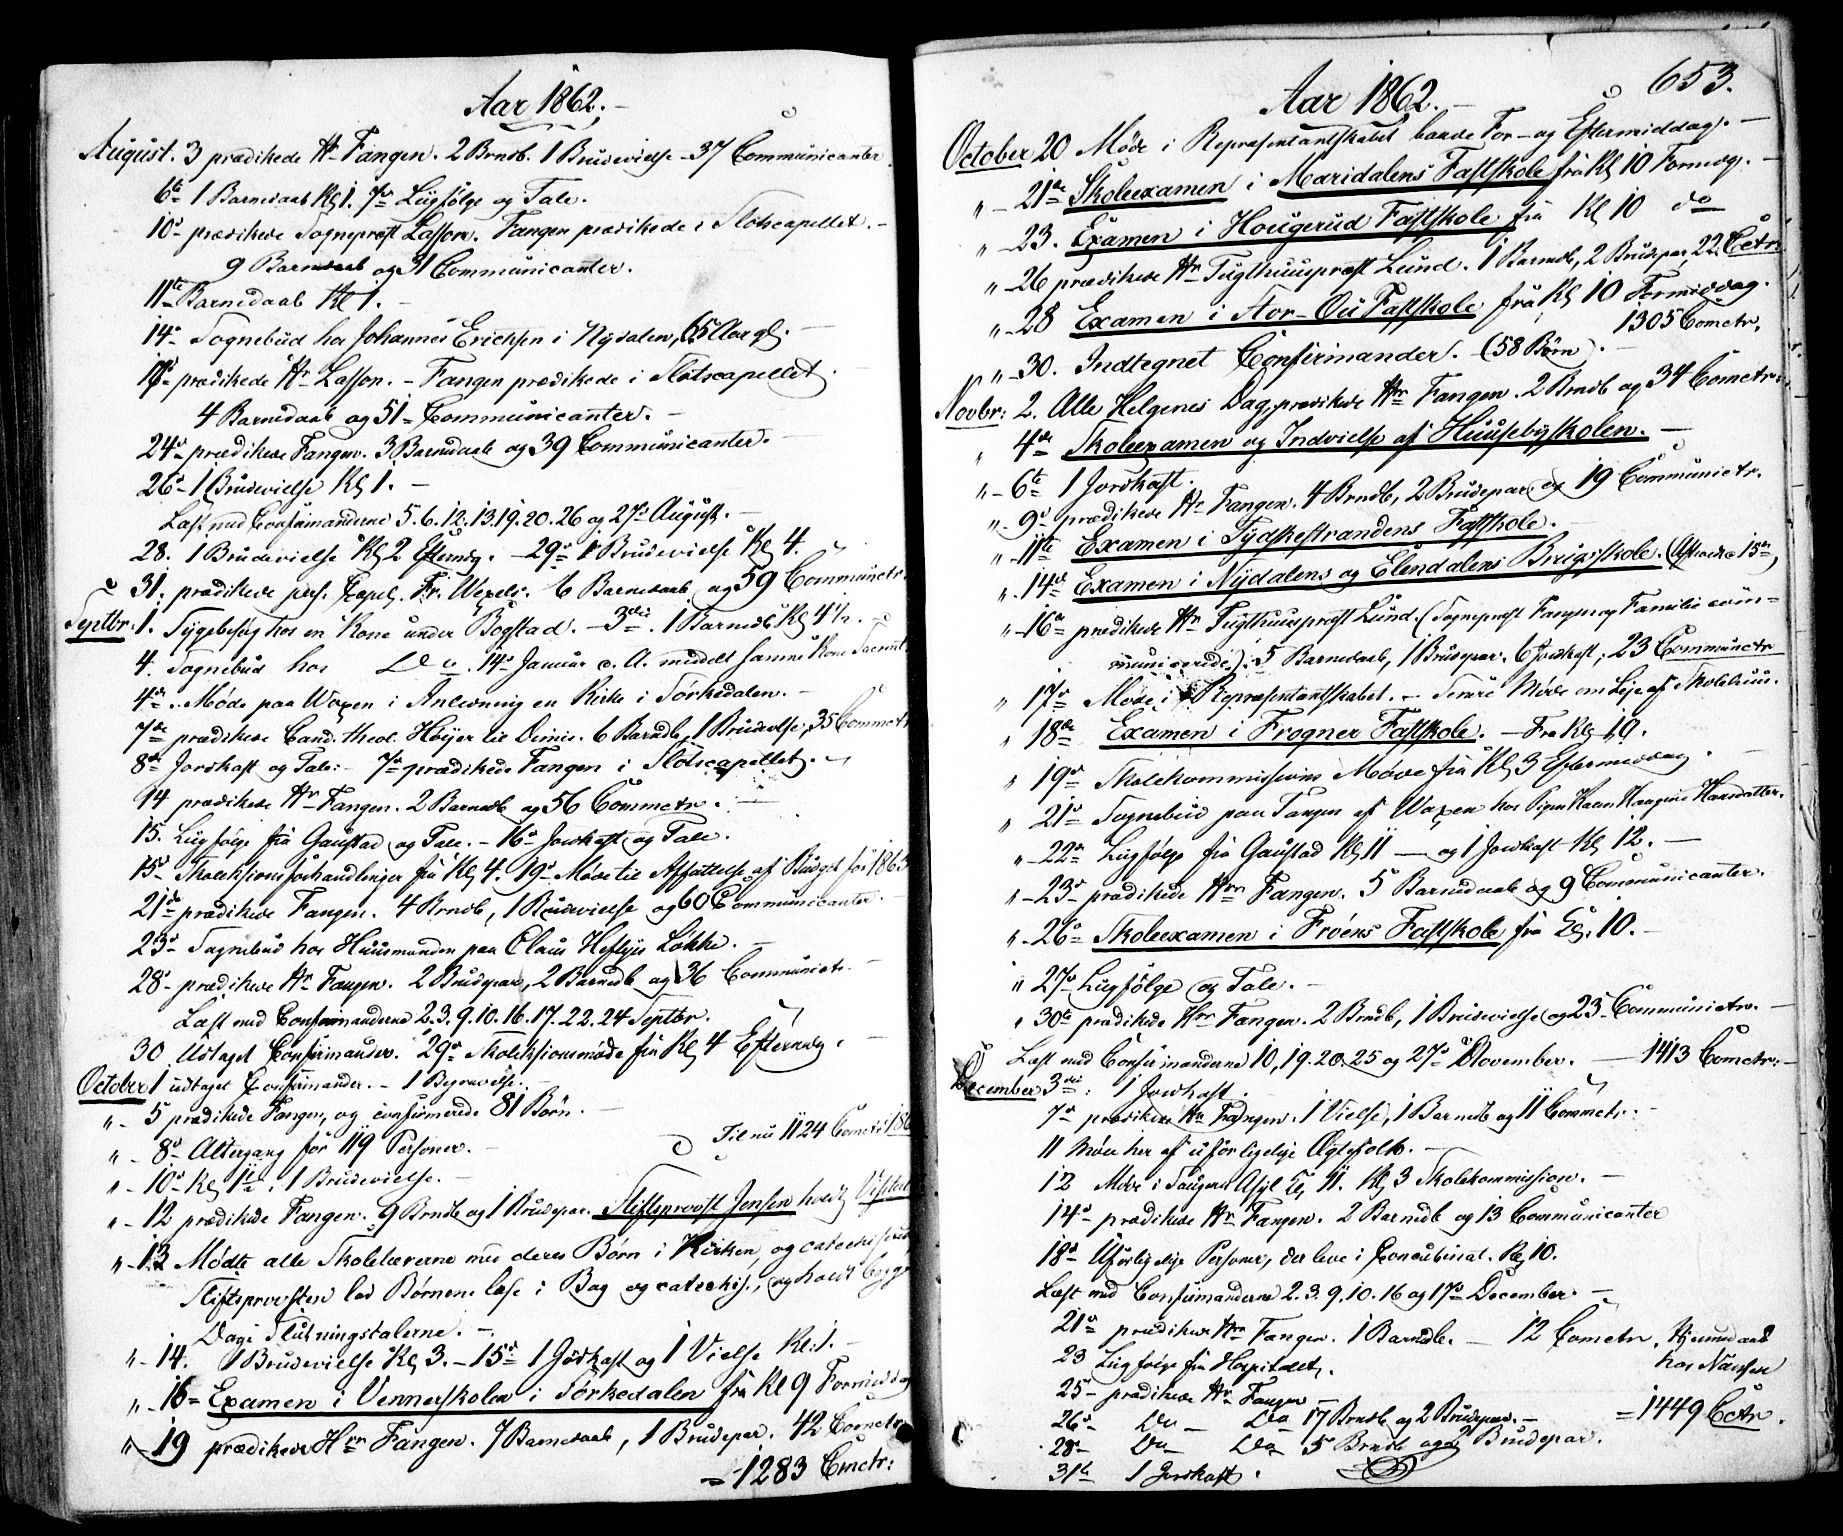 Aar 1862.
August. 3 prædikede Hr Fangen. 2 Brndb. 1 Brudevielse - 37 Communicanter
6te 1 Barnedaab Kl 1. 7de Liigfølge og Tale.
10de prædikede Sognepræst Lasson. Fangen prædikede i Slotscapellet.
9 Barnedaab og 31 Communicanter.
11te Barnedaab Kl 1.
14de Sognebud hos Johannes Erichsen i Nydalen, 65 Aar gl.
17de prædikede Hr Lasson. - Fangen prædikede i Slotscapellet.
4 Barnedaab og 51 Communicanter. -
24de prædikede Fangen. 3 Barnedaab og 39 Communicanter.
26de 1 Brudevielse Kl 1. -
Læst med Confirmanderne 5. 6. 12. 13. 19. 20. 26 og 27de August. -
28. 1 Brudevielse Kl 2 Efterm. - 29de 1 Brudevielse Kl 4.
31. prædikede pers. Capel. Fr. Wexels. 6 Barnedaab og 59 Communctr.
Septbr. 1. Sygebesøg hos en Kone under Bogstad. - 3die. 1 Barnedb Kl 4½.
4. Sognebud hos Do. 14de Januar c. A. meddelt samme Kone Sacrmt.
4de. Møde paa Voxen i Anledning en Kirke i Sørkedalen. -
7de prædikede Cand. theol. Høyer til Dimis. 6 Barndb, 1 Brudevlse, 35 Commctr
8de Jordkast og Tale: - 7de prædikede Fangen i Slotscapellet.
14 prædikede Hr Fangen. 2 Barnedb og 56 Commctr.
15. Liigfølge fra Gaustad og Tale. - 16de Jordkast og Tale.
15de Skoleksionsforhandlinger fra Kl 4. 19de Møde til Affattelse af Budget for 1863
21de prædikede Fangen. 4 Brndb, 1 Brudevielse og 60 Communicanter.
23de Sognebud hos Huusmanden paa Claus Heftyes Løkke.
28de prædikede Hr Fangen. 2 Brudepar, 2 Barnedb og 36 Communictr.
Læst med Confirmanderne 2. 3. 9. 10. 16. 17. 22. 24 Septbr.
30 Udtaget Confirmander. 29de Skoleksionsmøde fra Kl 4 Eftermdg.
October 1 udtaget Confirmander. - 1 Begravelse.
" - 5 prædikede Fangen, og confirmerede 81 Børn. -
" - 8de Altergang for 119 Personer. - Til nu 1124 Comctr: 186
" - 10de Kl 1½. 1 Brudevielse. -
" - 12 prædikede Fangen. 9 Brndb og 1 Brudepar. Stiftsprovst Jensen holdt Visitat
" - 13 Mødte alle Skolelærerne med deres Børn i Kirken, og catechiserede
Stiftsprovsten lod Børnene læse i Bog og catechis., og holdt begge
Dage Slutningstalerne. -
" - 14. 1 Brudevielse Kl 3. - 15de 1 Jordkast og 1 Vielse Kl. 1. -
" - 16 Examen i Vennerskolen i Sørkedalen fra Kl 9 Formiddag
" - 19 prædikede Hrr Fangen. 7 Barnedaab, 1 Brudepar. 42 Comctr
= 1283 Cmctr:
Aar 1862. 653.
October 20 Møde i Repræsentantskabet baade For- og Eftermiddag. -
" - 21de Skoleexamen i Maridalens Fastskole fra Kl 10 Formdg. -
" - 23. Examen i Hougerud Fastskole fra Kl 10 do
" - 26 prædikede Hr Tugthuuspræst Lund. 1 Barndb, 2 Brudepar, 22 Cctr.
" - 28 Examen i Stor-Øu Fastskole fra Kl 10 Formiddag.
" - 30. Indtegnet Confirmander. (58 Børn). - 1305 Comctr.
Novbr: 2. Alle Helgenes Dag, prædikede Hrr Fangen. 2 Brndb og 34 Comctr.
" 4de Skoleexamen og Indvielse af Huusebyskolen. -
" - 6te 1 Jordkast.
" - 9de prædikede Hr Fangen. 4 Brndb, 2 Brudepar og 19 Communictr.
" - 11te Examen i Tydskestrandens Fastskole. -
" - 14de Examen i Nydalens og Elendalens Brugsskole. (Afhandle 15de)
" - 16de prædikede Hr Tugthuuspræst Lund. (Sognepræst Fangen og Familie com=
municerede.) 5 Barnedaab, 1 Brudepar. 6 Jordkast, 23 Communctr
" 17de Møde i Repræsentantskabet. - Møde om Leje af Skolehuus.
" 18de Examen i Frogner Fastskole. - Fra Kl 10.
" 19de Skolekommissions Møde fra Kl 3 Eftermiddag.
" 21de Sognebud paa Tangen af Voxen hos Pigen Karen Hansdatter.
" - 22de Liigfølge fra Gaustad Kl 11 - og 1 Jordkast Kl 12. -
" - 23de prædikede Hrr Fangen. 5 Barnedaab og 9 Communicanter.
" - 26de Skoleexamen i Frøens Fastskole fra Kl. 10. -
" 27de Liigfølge og Tale. -
" 30te prædikede Hrr Fangen. 2 Brndb, 1 Brudevielse og 23 Communictr. -
Læst med Confirmanderne 10, 19. 20. 25 og 27de November. - 1413 Comctr: -
December 3die: 1 Jordkast.
7de prædikede Hr Fangen. 1 Vielse, 1 Barnedb og 11 Commctr. -
11 Møde her af uforligelige Ægtefolk. -
12 Møde i Saugenes Asyl Kl 11. Kl 3 Skolekommission. -
14de prædikede Hr Fangen. 2 Barnedb og 13 Communicanter
18de Uforligelige Personer, der leve i Concubinat. Kl 10.
Læst med Confirmanderne 2. 3. 9. 10. 16 og 17de December. -
21de prædikede Hrr Fangen. 1 Barndb. - 12 Comctr, Hjemmedaab
23 Liigfølge fra Hospitalet. hos Nansen
25de prædikede Hr Fangen -
26de Do - Do 17 Brndb og 2 Brudepar. - = 1449 Cctr.
28de Do Do 5 Brndb og 2 Brudepar.
31te 1 Jordkast.